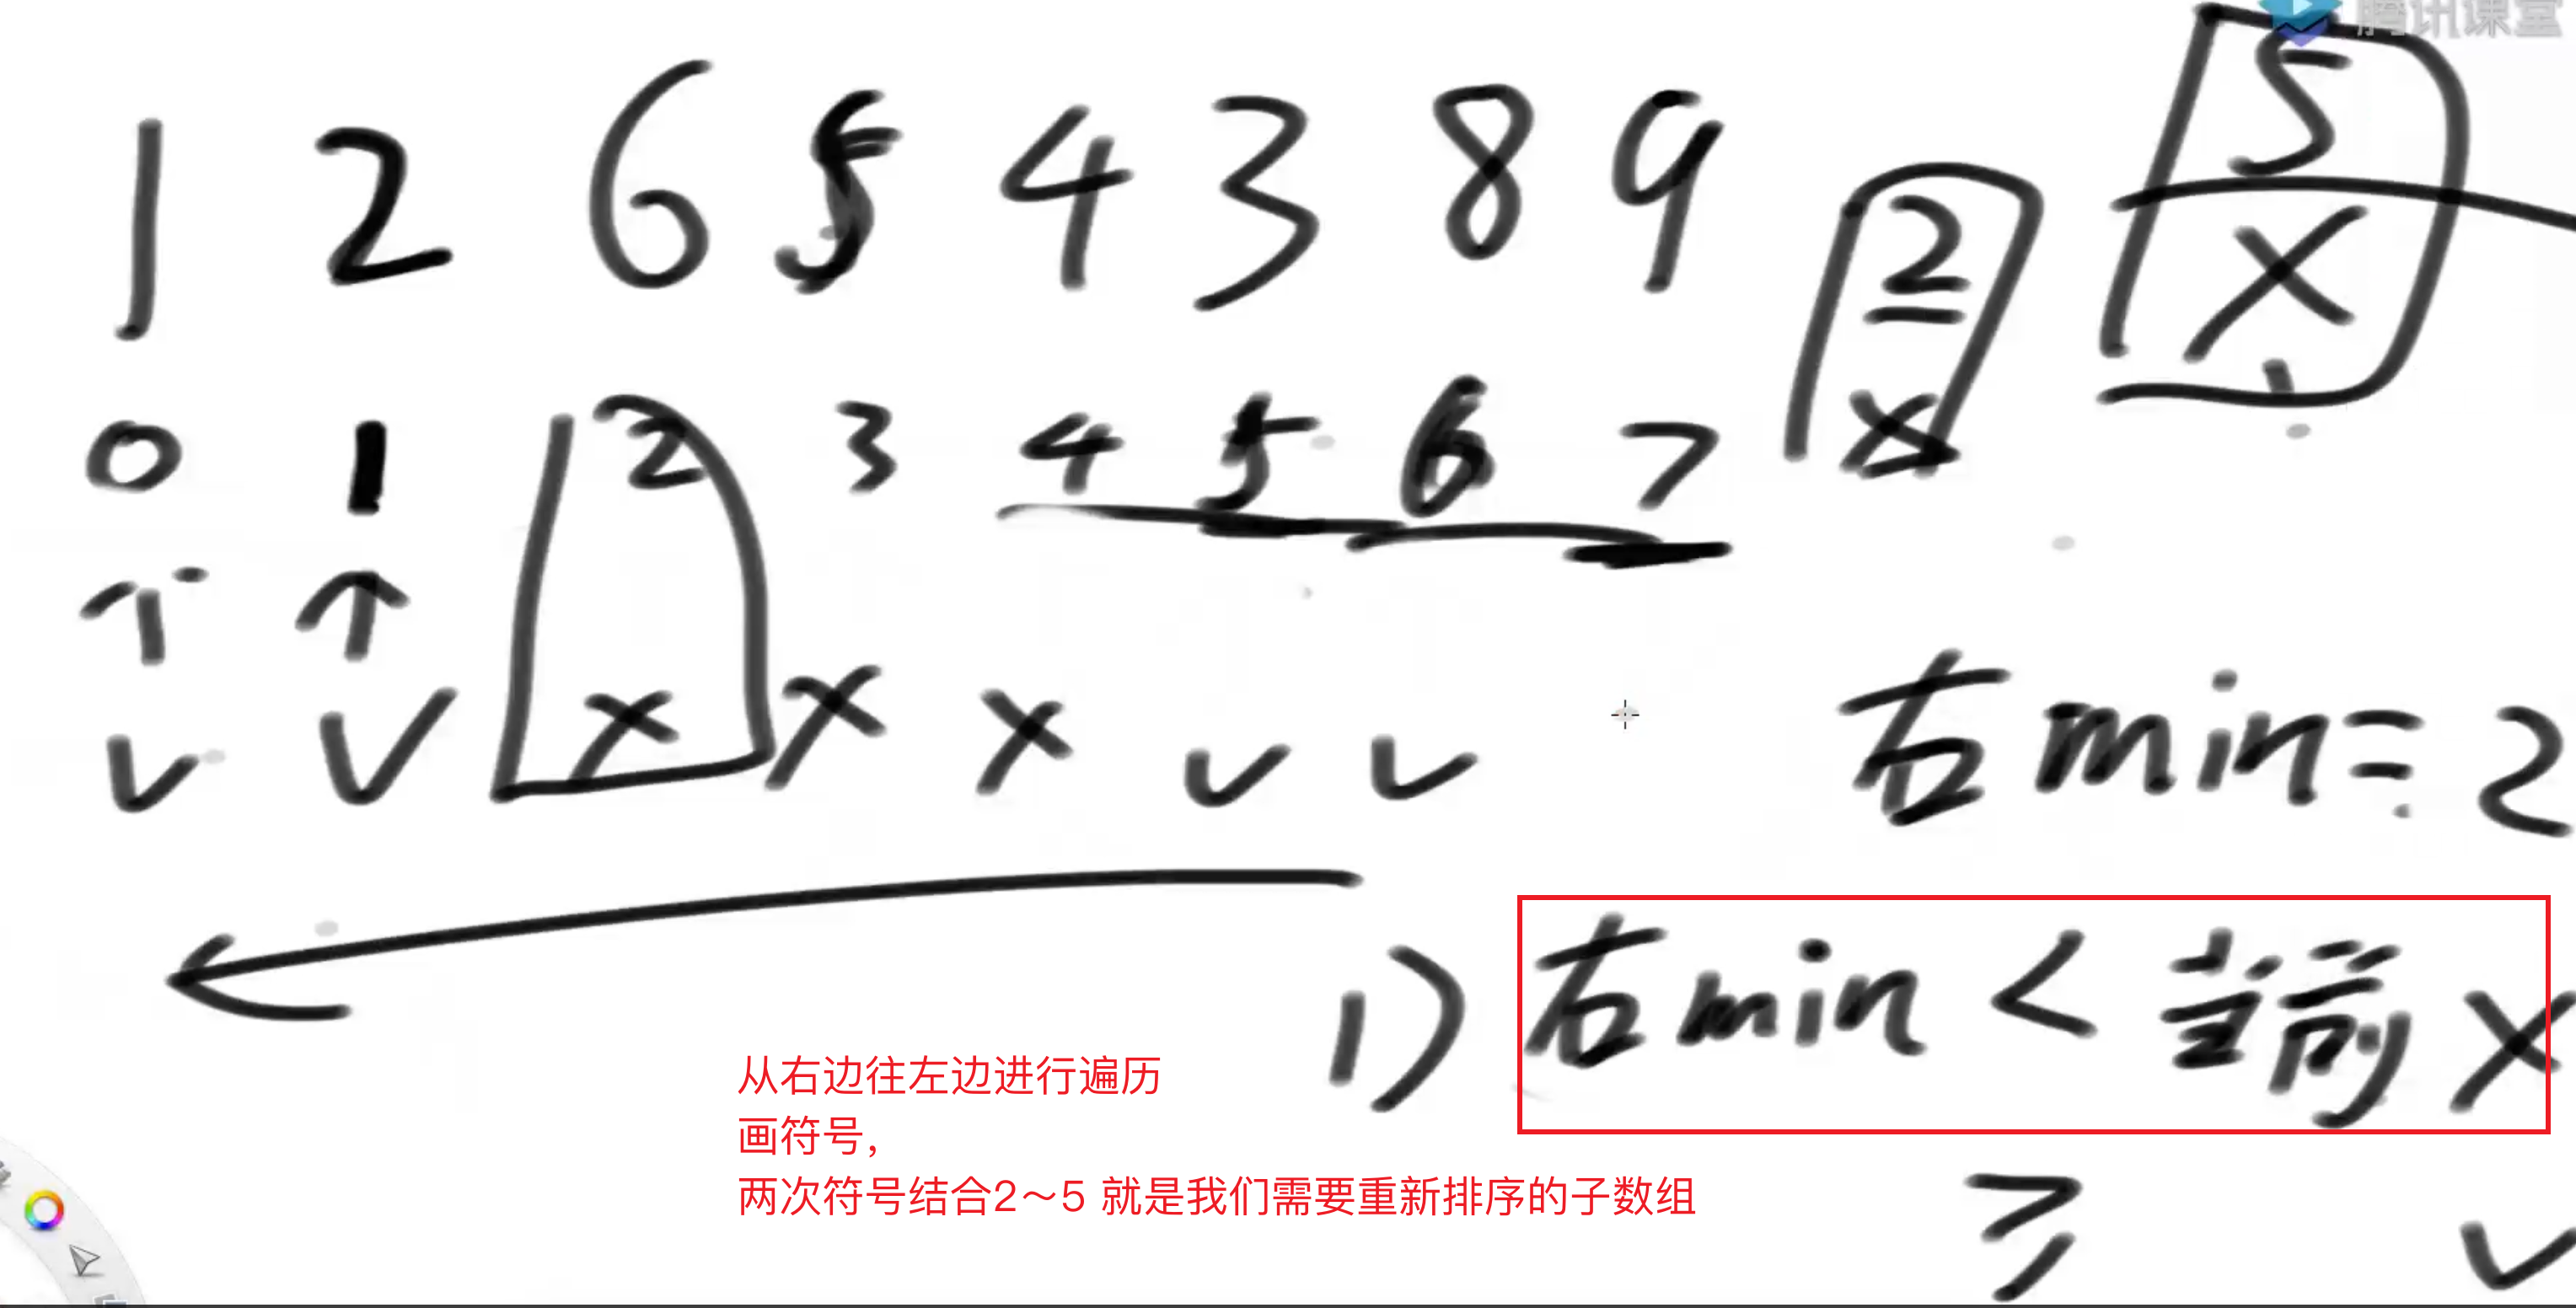 腾讯课堂
1 2 6 5 4 3 8 9
5
X
2
X
0 1 2 3 4 5 6 7
↑ ↑
✓ ✓ X X X ✓ ✓
右min = 2
1) 右min < 当前 X
从右边往左边进行遍历
画符号，
两次符号结合2～5 就是我们需要重新排序的子数组
≥ ✓